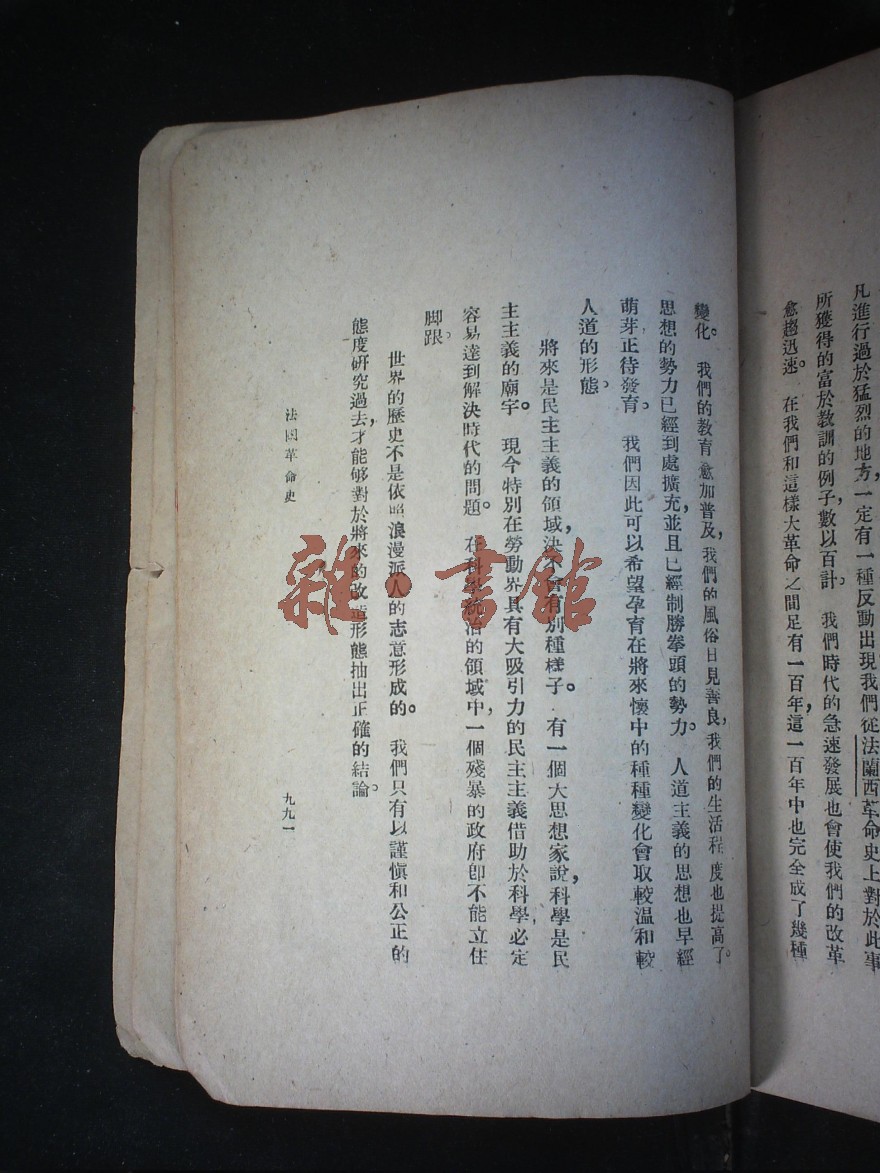 凡進行過於猛烈的地方,一定有一種反動出現我們從法蘭西革命史上對於此事
所獲得的富於教訓的例子,數以百計。我們時代的急速發展也會使我們的改革
愈趨迅速。在我們和這樣大革命之間足有一百年,這一百年中也完全成了幾種
變化。我們的教育愈加普及,我們的風俗日見善良,我們的生活程度也提高了。
思想的勢力已經到處擴充,並且已經制勝拳頭的勢力。人道主義的思想也早經
萌芽正待發育。我們因此可以希望孕育在將來懷中的種種變化會取較溫和較
人道的形態。
將來是民主主義的領域,決不會有別種樣子。有一個大思想家說,科學是民
主主義的廟宇。現今特別在勞動界具有大吸引力的民主主義借助於科學必定
容易達到解決時代的問題。在科學統治的領域中,一個殘暴的政府卽不能立住
脚跟。
世界的歷史不是依照浪漫派人的志意形成的。我們只有以謹愼和公正的
態度研究過去,才能够對於將來的改造形態抽出正確的結論。
法國革命史
九九一
雜·書館